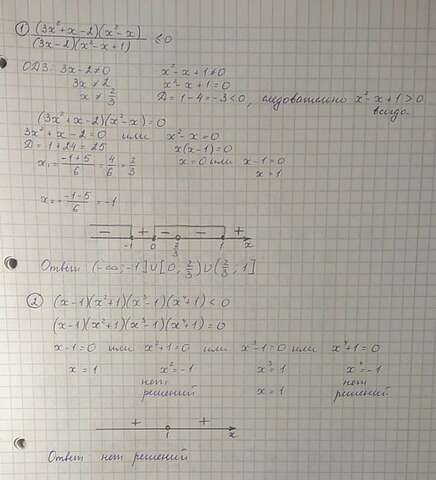 ① (3x²+x-2)(x²-x) / (3x-2)(x²-x+1) ≤ 0
ОДЗ: 3x-2≠0 x²-x+1≠0
3x≠2 x²-x+1=0
x≠2/3 D=1-4=-3<0, следовательно x²-x+1>0
всегда.
(3x²+x-2)(x²-x)=0
3x²+x-2=0 или x²-x=0
D=1+24=25 x(x-1)=0
x₁=(-1+5)/6=4/6=2/3 x=0 или x-1=0
x=1
x=(-1-5)/6=-1
- + - - +
-1 0 2/3 1 x
Ответ (-∞,-1]∪[0,2/3)∪(2/3,1]
② (x-1)(x²+1)(x³-1)(x⁴+1)<0
(x-1)(x²+1)(x³-1)(x⁴+1)=0
x-1=0 или x²+1=0 или x³-1=0 или x⁴+1=0
x=1 x²=-1 x³=1 x⁴=-1
нет нет
решений x=1 решений
+ +
1 x
Ответ нет решений